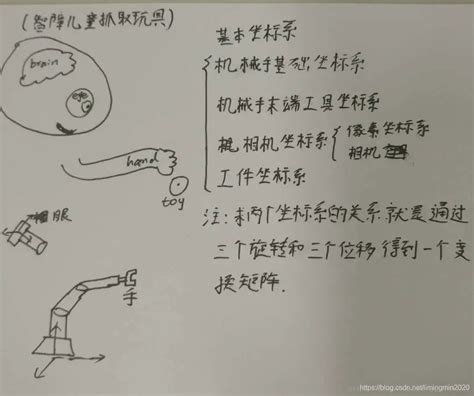 (智障儿童抓取玩具)
brain
eye
hand
toy
眼
手
基本坐标系
机械手基础坐标系
机械手末端工具坐标系
相机坐标系
像素坐标系
相机
工件坐标系
注:求两个坐标系的关系就是通过
三个旋转和三个位移得到一个变
换矩阵.
https://blog.csdn.net/limingmin2020